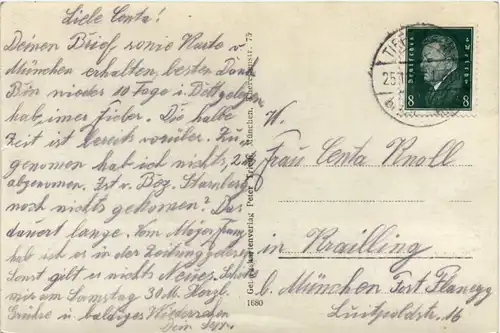 Liebe Centa!
Deinen Brief, sowie Karte v.
München erhalten, besten Dank
Bin wieder 10 Tage i. Bettgelegen
hab imer Fieber. Die halbe
Zeit ist bereits vorüber. Zu-
genomen hab ich nichts,
abgenomen. Ist v. Bez. Starnberg
noch nichts gekomen? Das
dauert lange. Vom Major
hab ich es in der Zeitung gelesen
Sonst gibt es nichts Neues.
mir am Samstag 30 M. Herzl.
Grüße u. baldiges Wiedersehen
Dein
Peter München, Theresienstr. 75
1680
TIEF
25.1
8 8
W.
Frau Centa Knoll
in Krailling
b. München Post Planegg
Luitpoldstr. 16